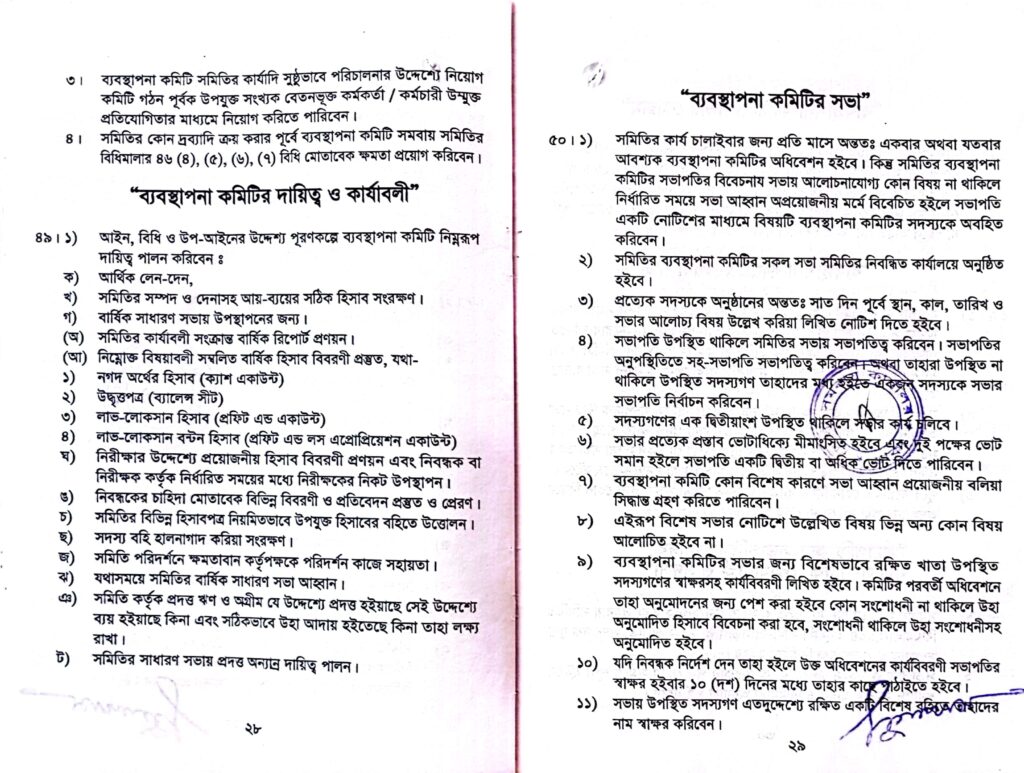 ৩। ব্যবস্থাপনা কমিটি সমিতির কার্যাদি সুষ্ঠুভাবে পরিচালনার উদ্দেশ্যে নিয়োগ
কমিটি গঠন পূর্বক উপযুক্ত সংখ্যক বেতনভূক্ত কর্মকর্তা / কর্মচারী উম্মুক্ত
প্রতিযোগিতার মাধ্যমে নিয়োগ করিতে পারিবেন।
৪। সমিতির কোন দ্রব্যাদি ক্রয় করার পূর্বে ব্যবস্থাপনা কমিটি সমবায় সমিতির
বিধিমালার ৪৬ (৪), (৫), (৬), (৭) বিধি মোতাবেক ক্ষমতা প্রয়োগ করিবেন।
“ব্যবস্থাপনা কমিটির দায়িত্ব ও কার্যাবলী”
৪৯। ১) আইন, বিধি ও উপ-আইনের উদ্দেশ্য পূরণকল্পে ব্যবস্থাপনা কমিটি নিম্নরূপ
দায়িত্ব পালন করিবেন ঃ
ক) আর্থিক লেন-দেন,
খ) সমিতির সম্পদ ও দেনাসহ আয়-ব্যয়ের সঠিক হিসাব সংরক্ষণ।
গ) বার্ষিক সাধারণ সভায় উপস্থাপনের জন্য।
(অ) সমিতির কার্যাবলী সংক্রান্ত বার্ষিক রিপোর্ট প্রণয়ন।
(আ) নিম্নোক্ত বিষয়াবলী সম্বলিত বার্ষিক হিসাব বিবরণী প্রস্তুত, যথা-
১) নগদ অর্থের হিসাব (ক্যাশ একাউন্ট)
২) উদ্ধৃত্তপত্র (ব্যালেন্স সীট)
৩) লাভ-লোকসান হিসাব (প্রফিট এন্ড একাউন্ট)
৪) লাভ-লোকসান বন্টন হিসাব (প্রফিট এন্ড লস এপ্রোপ্রিয়েশন একাউন্ট)
ঘ) নিরীক্ষার উদ্দেশ্যে প্রয়োজনীয় হিসাব বিবরণী প্রণয়ন এবং নিবন্ধক বা
নিরীক্ষক কর্তৃক নির্ধারিত সময়ের মধ্যে নিরীক্ষকের নিকট উপস্থাপন।
ঙ) নিবন্ধকের চাহিদা মোতাবেক বিভিন্ন বিবরণী ও প্রতিবেদন প্রস্তুত ও প্রেরণ।
চ) সমিতির বিভিন্ন হিসাবপত্র নিয়মিতভাবে উপযুক্ত হিসাবের বহিতে উত্তোলন।
ছ) সদস্য বহি হালনাগাদ করিয়া সংরক্ষণ।
জ) সমিতি পরিদর্শনে ক্ষমতাবান কর্তৃপক্ষকে পরিদর্শন কাজে সহায়তা।
ঝ) যথাসময়ে সমিতির বার্ষিক সাধারণ সভা আহ্বান।
ঞ) সমিতি কর্তৃক প্রদত্ত ঋণ ও অগ্রীম যে উদ্দেশ্যে প্রদত্ত হইয়াছে সেই উদ্দেশ্যে
ব্যয় হইয়াছে কিনা এবং সঠিকভাবে উহা আদায় হইতেছে কিনা তাহা লক্ষ্য
রাখা।
ট) সমিতির সাধারণ সভায় প্রদত্ত অন্যান্র দায়িত্ব পালন।
২৮
“ব্যবস্থাপনা কমিটির সভা”
৫০। ১) সমিতির কার্য চালাইবার জন্য প্রতি মাসে অন্ততঃ একবার অথবা যতবার
আবশ্যক ব্যবস্থাপনা কমিটির অধিবেশন হইবে। কিন্তু সমিতির ব্যবস্থাপনা
কমিটির সভাপতির বিবেচনায় সভায় আলোচনাযোগ্য কোন বিষয় না থাকিলে
নির্ধারিত সময়ে সভা আহ্বান অপ্রয়োজনীয় মর্মে বিবেচিত হইলে সভাপতি
একটি নোটিশের মাধ্যমে বিষয়টি ব্যবস্থাপনা কমিটির সদস্যকে অবহিত
করিবেন।
২) সমিতির ব্যবস্থাপনা কমিটির সকল সভা সমিতির নিবন্ধিত কার্যালয়ে অনুষ্ঠিত
হইবে।
৩) প্রত্যেক সদস্যকে অনুষ্ঠানের অন্ততঃ সাত দিন পূর্বে স্থান, কাল, তারিখ ও
সভার আলোচ্য বিষয় উল্লেখ করিয়া লিখিত নোটিশ দিতে হইবে।
৪) সভাপতি উপস্থিত থাকিলে সমিতির সভায় সভাপতিত্ব করিবেন। সভাপতির
অনুপস্থিতিতে সহ-সভাপতি সভাপতিত্ব করিবেন। অথবা তাহারা উপস্থিত না
থাকিলে উপস্থিত সদস্যগণ তাহাদের মধ্য হইতে একজন সদস্যকে সভার
সভাপতি নির্বাচন করিবেন।
৫) সদস্যগণের এক দ্বিতীয়াংশ উপস্থিত থাকিলে সভার কার্য চলিবে।
৬) সভার প্রত্যেক প্রস্তাব ভোটাধিক্যে মীমাংসিত হইবে এবং দুই পক্ষের ভোট
সমান হইলে সভাপতি একটি দ্বিতীয় বা অধিক ভোট দিতে পারিবেন।
৭) ব্যবস্থাপনা কমিটি কোন বিশেষ কারণে সভা আহ্বান প্রয়োজনীয় বলিয়া
সিদ্ধান্ত গ্রহণ করিতে পারিবেন।
৮) এইরূপ বিশেষ সভার নোটিশে উল্লেখিত বিষয় ভিন্ন অন্য কোন বিষয়
আলোচিত হইবে না।
৯) ব্যবস্থাপনা কমিটির সভার জন্য বিশেষভাবে রক্ষিত খাতা উপস্থিত
সদস্যগণের স্বাক্ষরসহ কার্যবিবরণী লিখিত হইবে। কমিটির পরবর্তী অধিবেশনে
তাহা অনুমোদনের জন্য পেশ করা হইবে কোন সংশোধনী না থাকিলে উহা
অনুমোদিত হিসাবে বিবেচনা করা হবে, সংশোধনী থাকিলে উহা সংশোধনীসহ
অনুমোদিত হইবে।
১০) যদি নিবন্ধক নির্দেশ দেন তাহা হইলে উক্ত অধিবেশনের কার্যবিবরণী সভাপতির
স্বাক্ষর হইবার ১০ (দশ) দিনের মধ্যে তাহার কাছে পাঠাইতে হইবে।
১১) সভায় উপস্থিত সদস্যগণ এতদুদ্দেশ্যে রক্ষিত একটি বিশেষ বহিতে তাহাদের
নাম স্বাক্ষর করিবেন।
২৯